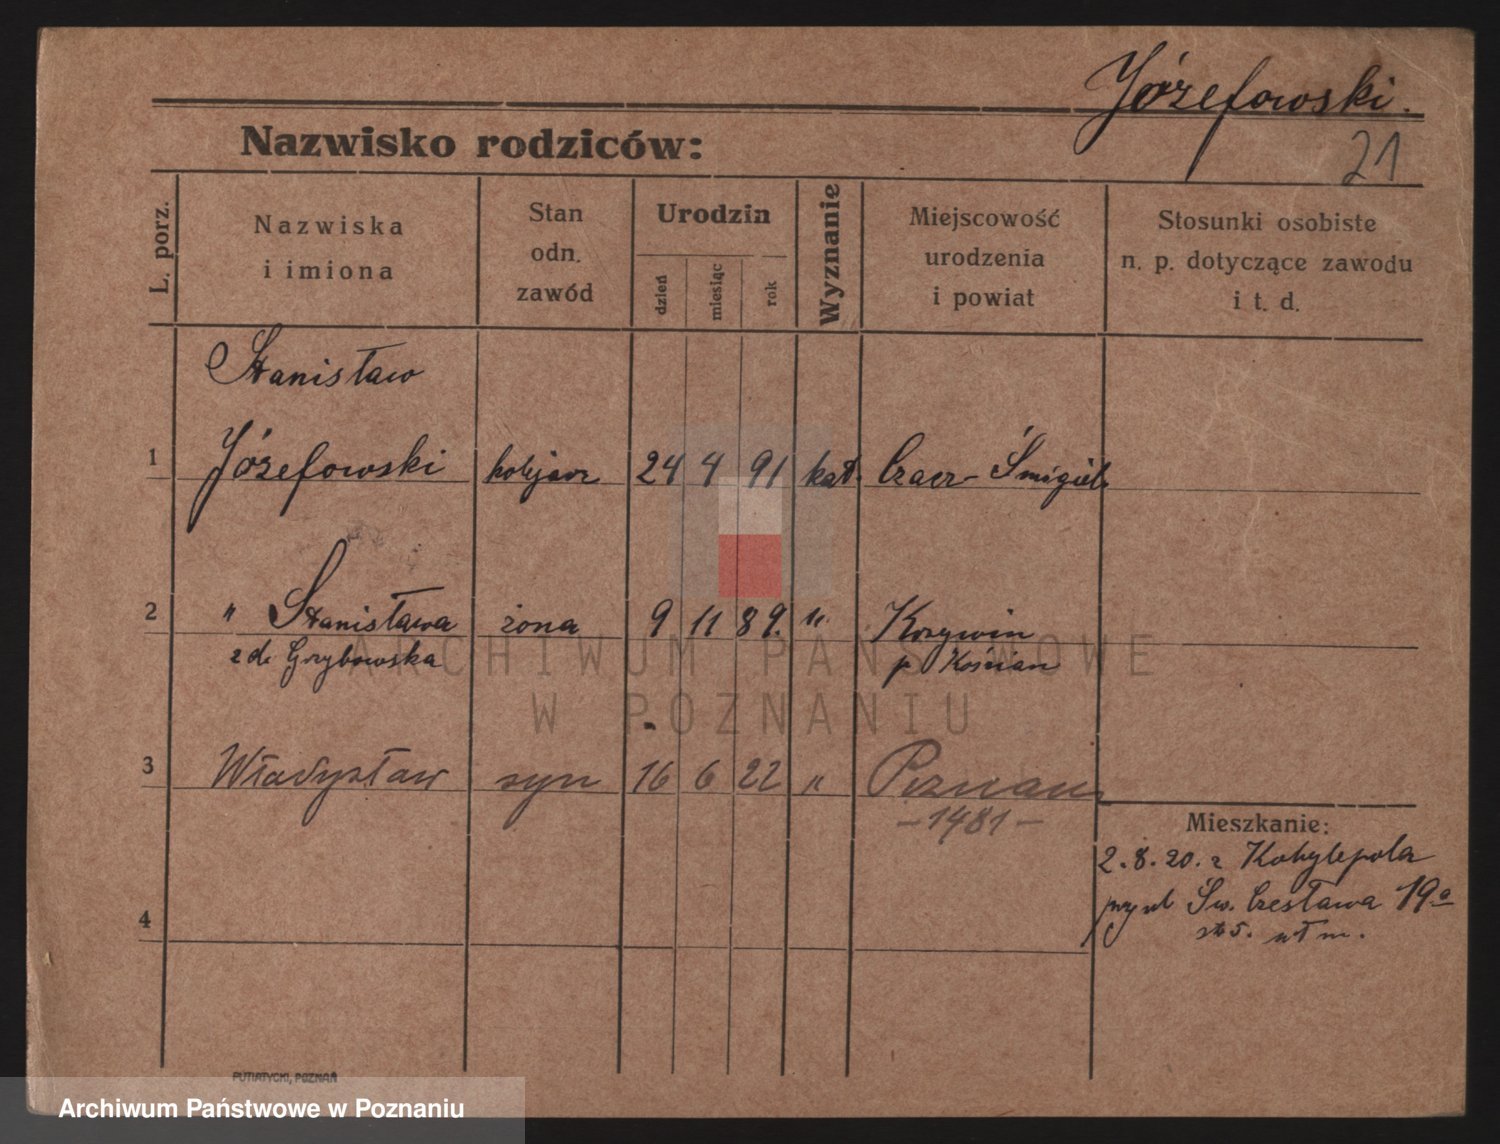 Józefowski.
21
Nazwisko rodziców:
L. porz.
Nazwiska
i imiona
Stan
odn.
zawód
Urodzin
dzień
miesiąc
rok
Wyznanie
Miejscowość
urodzenia
i powiat
Stosunki osobiste
n. p. dotyczące zawodu
i t. d.
Stanisław
1 Józefowski kolejarz 24 4 91 kat. Czacz - Śmigiel
2 " Stanisława żona 9 11 89. " Krzywin
zd. Grzybowska p. Kościan
3 Władysław syn 16 6 22 " Poznań
- 1481 -
4
Mieszkanie:
2.8.20. z Kobylepola
przy ul Św. Czesława 19a
st 5. wł m.
PUTIATYCKI, POZNAŃ
ARCHIWUM PAŃSTWOWE
W POZNANIU
Archiwum Państwowe w Poznaniu